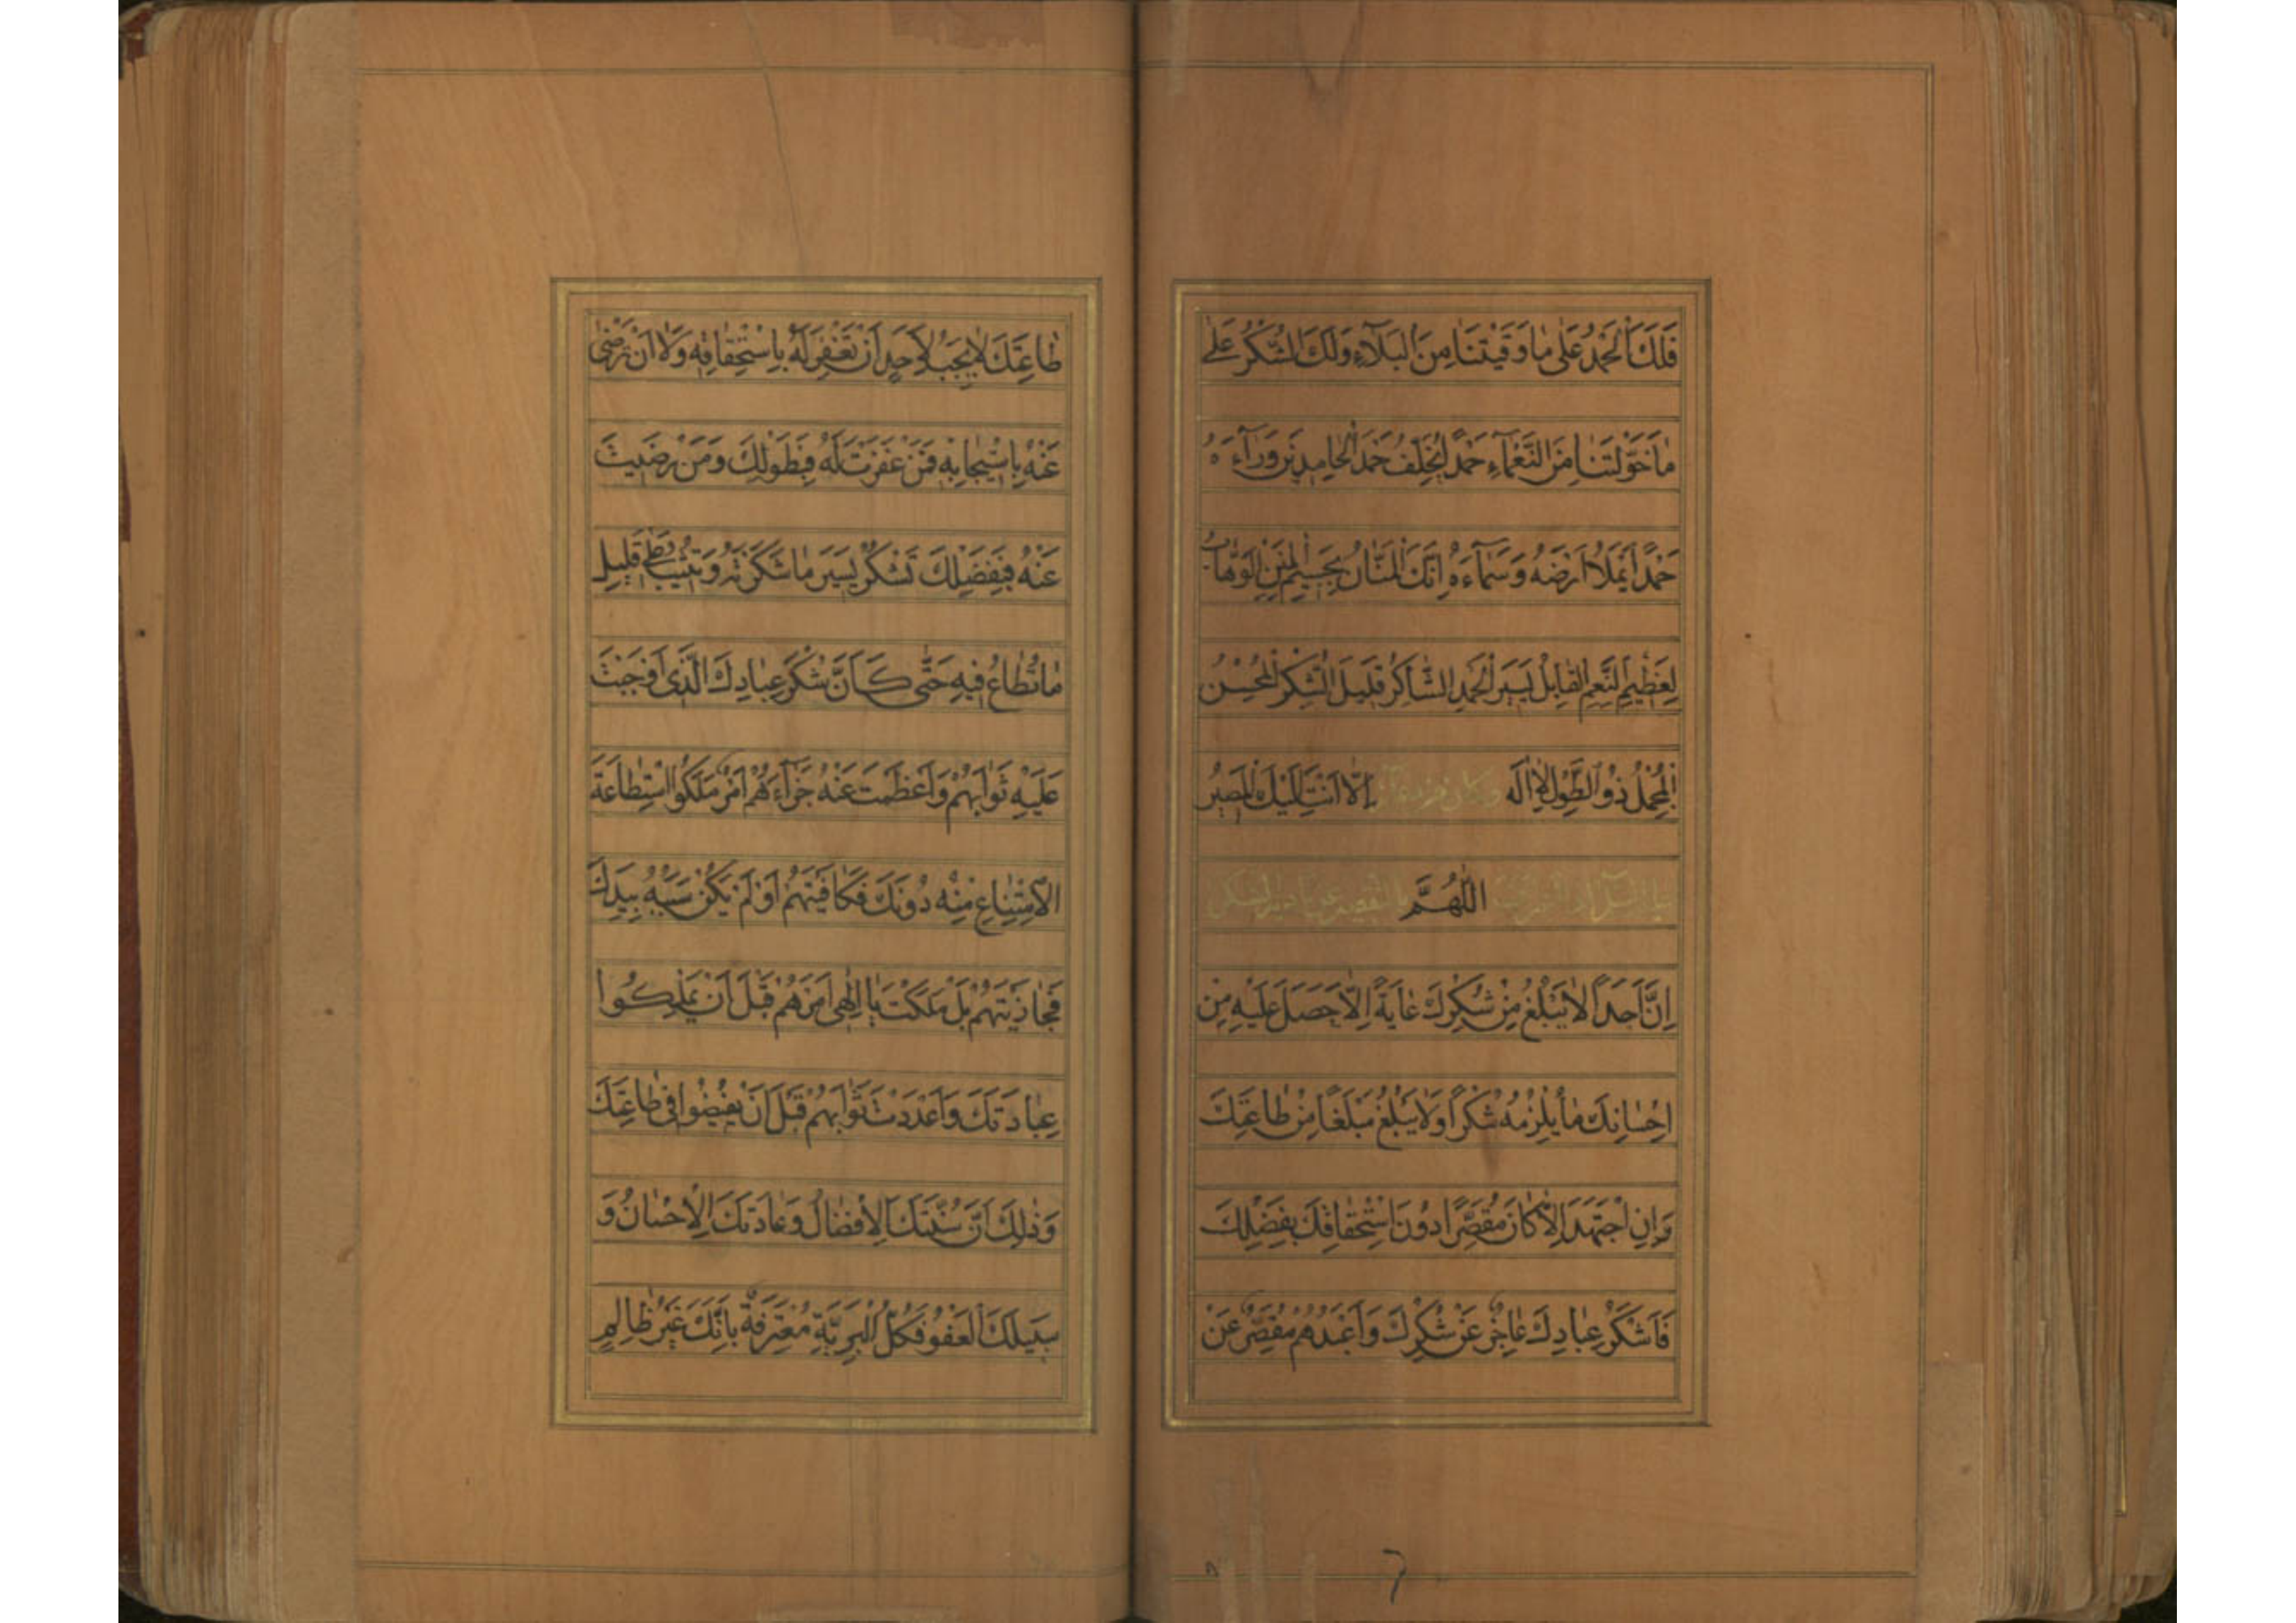 فَلَكَ الْحَمْدُ عَلٰى مٰا وَقَيْتَنٰا مِنَ الْبَلَآءِ وَلَكَ الشُّكْرُ عَلٰى
مٰا خَوَّلْتَنٰا مِنَ النَّعْمَآءِ حَمْدًا يُخَلِّفُ حَمْدَ الْحٰامِدِينَ وَرَآءَهُ
حَمْدًا يَمْلَأُ اَرْضَهُ وَسَمَآءَهُ اِنَّكَ الْمَنّٰانُ بِجَسِيمِ الْمِنَنِ الْوَهّٰابُ
لِعَظِيمِ النِّعَمِ الْقٰابِلُ يَسِيرَ الْحَمْدِ الشّٰاكِرُ قَلِيلَ الشُّكْرِ الْمُحْسِنُ
الْمُجْمِلُ ذُو الطَّوْلِ لٰا اِلٰهَ اِلّٰا اَنْتَ اِلَيْكَ الْمَصِيرُ وكان من دعائه
عليه السلام اذا اعترف بالتقصير عن تادية الشكر اَللّٰهُمَّ
اِنَّ اَحَدًا لٰا يَبْلُغُ مِنْ شُكْرِكَ غٰايَةً اِلّٰا حَصَلَ عَلَيْهِ مِنْ
اِحْسٰانِكَ مٰا يُلْزِمُهُ شُكْرًا وَلٰا يَبْلُغُ مَبْلَغًا مِنْ طٰاعَتِكَ
وَاِنِ اجْتَهَدَ اِلّٰا كٰانَ مُقَصِّرًا دُونَ اسْتِحْقٰاقِكَ بِفَضْلِكَ
فَاَشْكَرُ عِبٰادِكَ عٰاجِزٌ عَنْ شُكْرِكَ وَاَعْبَدُهُمْ مُقَصِّرٌ عَنْ
طٰاعَتِكَ لٰا يَجِبُ لِاَحَدٍ اَنْ تَغْفِرَ لَهُ بِاسْتِحْقٰاقِهِ وَلٰا اَنْ تَرْضٰى
عَنْهُ بِاسْتِيجٰابِهِ فَمَنْ غَفَرْتَ لَهُ فَبِطَوْلِكَ وَمَنْ رَضِيتَ
عَنْهُ فَبِفَضْلِكَ تَشْكُرُ يَسِيرَ مٰا شَكَرْتَهُ وَتُثِيبُ عَلٰى قَلِيلِ
مٰا تُطٰاعُ فِيهِ حَتّٰى كَاَنَّ شُكْرَ عِبٰادِكَ الَّذِى اَوْجَبْتَ
عَلَيْهِ ثَوٰابَهُمْ وَاَعْظَمْتَ عَنْهُ جَزٰآءَهُمْ اَمْرٌ مَلَكُوا اسْتِطٰاعَةَ
الْاِمْتِنٰاعِ مِنْهُ دُونَكَ فَكٰافَيْتَهُمْ اَوْ لَمْ يَكُنْ سَبَبُهُ بِيَدِكَ
فَجٰازَيْتَهُمْ بَلْ مَلَكْتَ يٰا اِلٰهِى اَمْرَهُمْ قَبْلَ اَنْ يَمْلِكُوا
عِبٰادَتَكَ وَاَعْدَدْتَ ثَوٰابَهُمْ قَبْلَ اَنْ يُفِيضُوا فِى طٰاعَتِكَ
وَذٰلِكَ اَنَّ سُنَّتَكَ الْاِفْضٰالُ وَعٰادَتَكَ الْاِحْسٰانُ وَ
سَبِيلَكَ الْعَفْوُ فَكُلُّ الْبَرِيَّةِ مُعْتَرِفَةٌ بِاَنَّكَ غَيْرُ ظٰالِمٍ